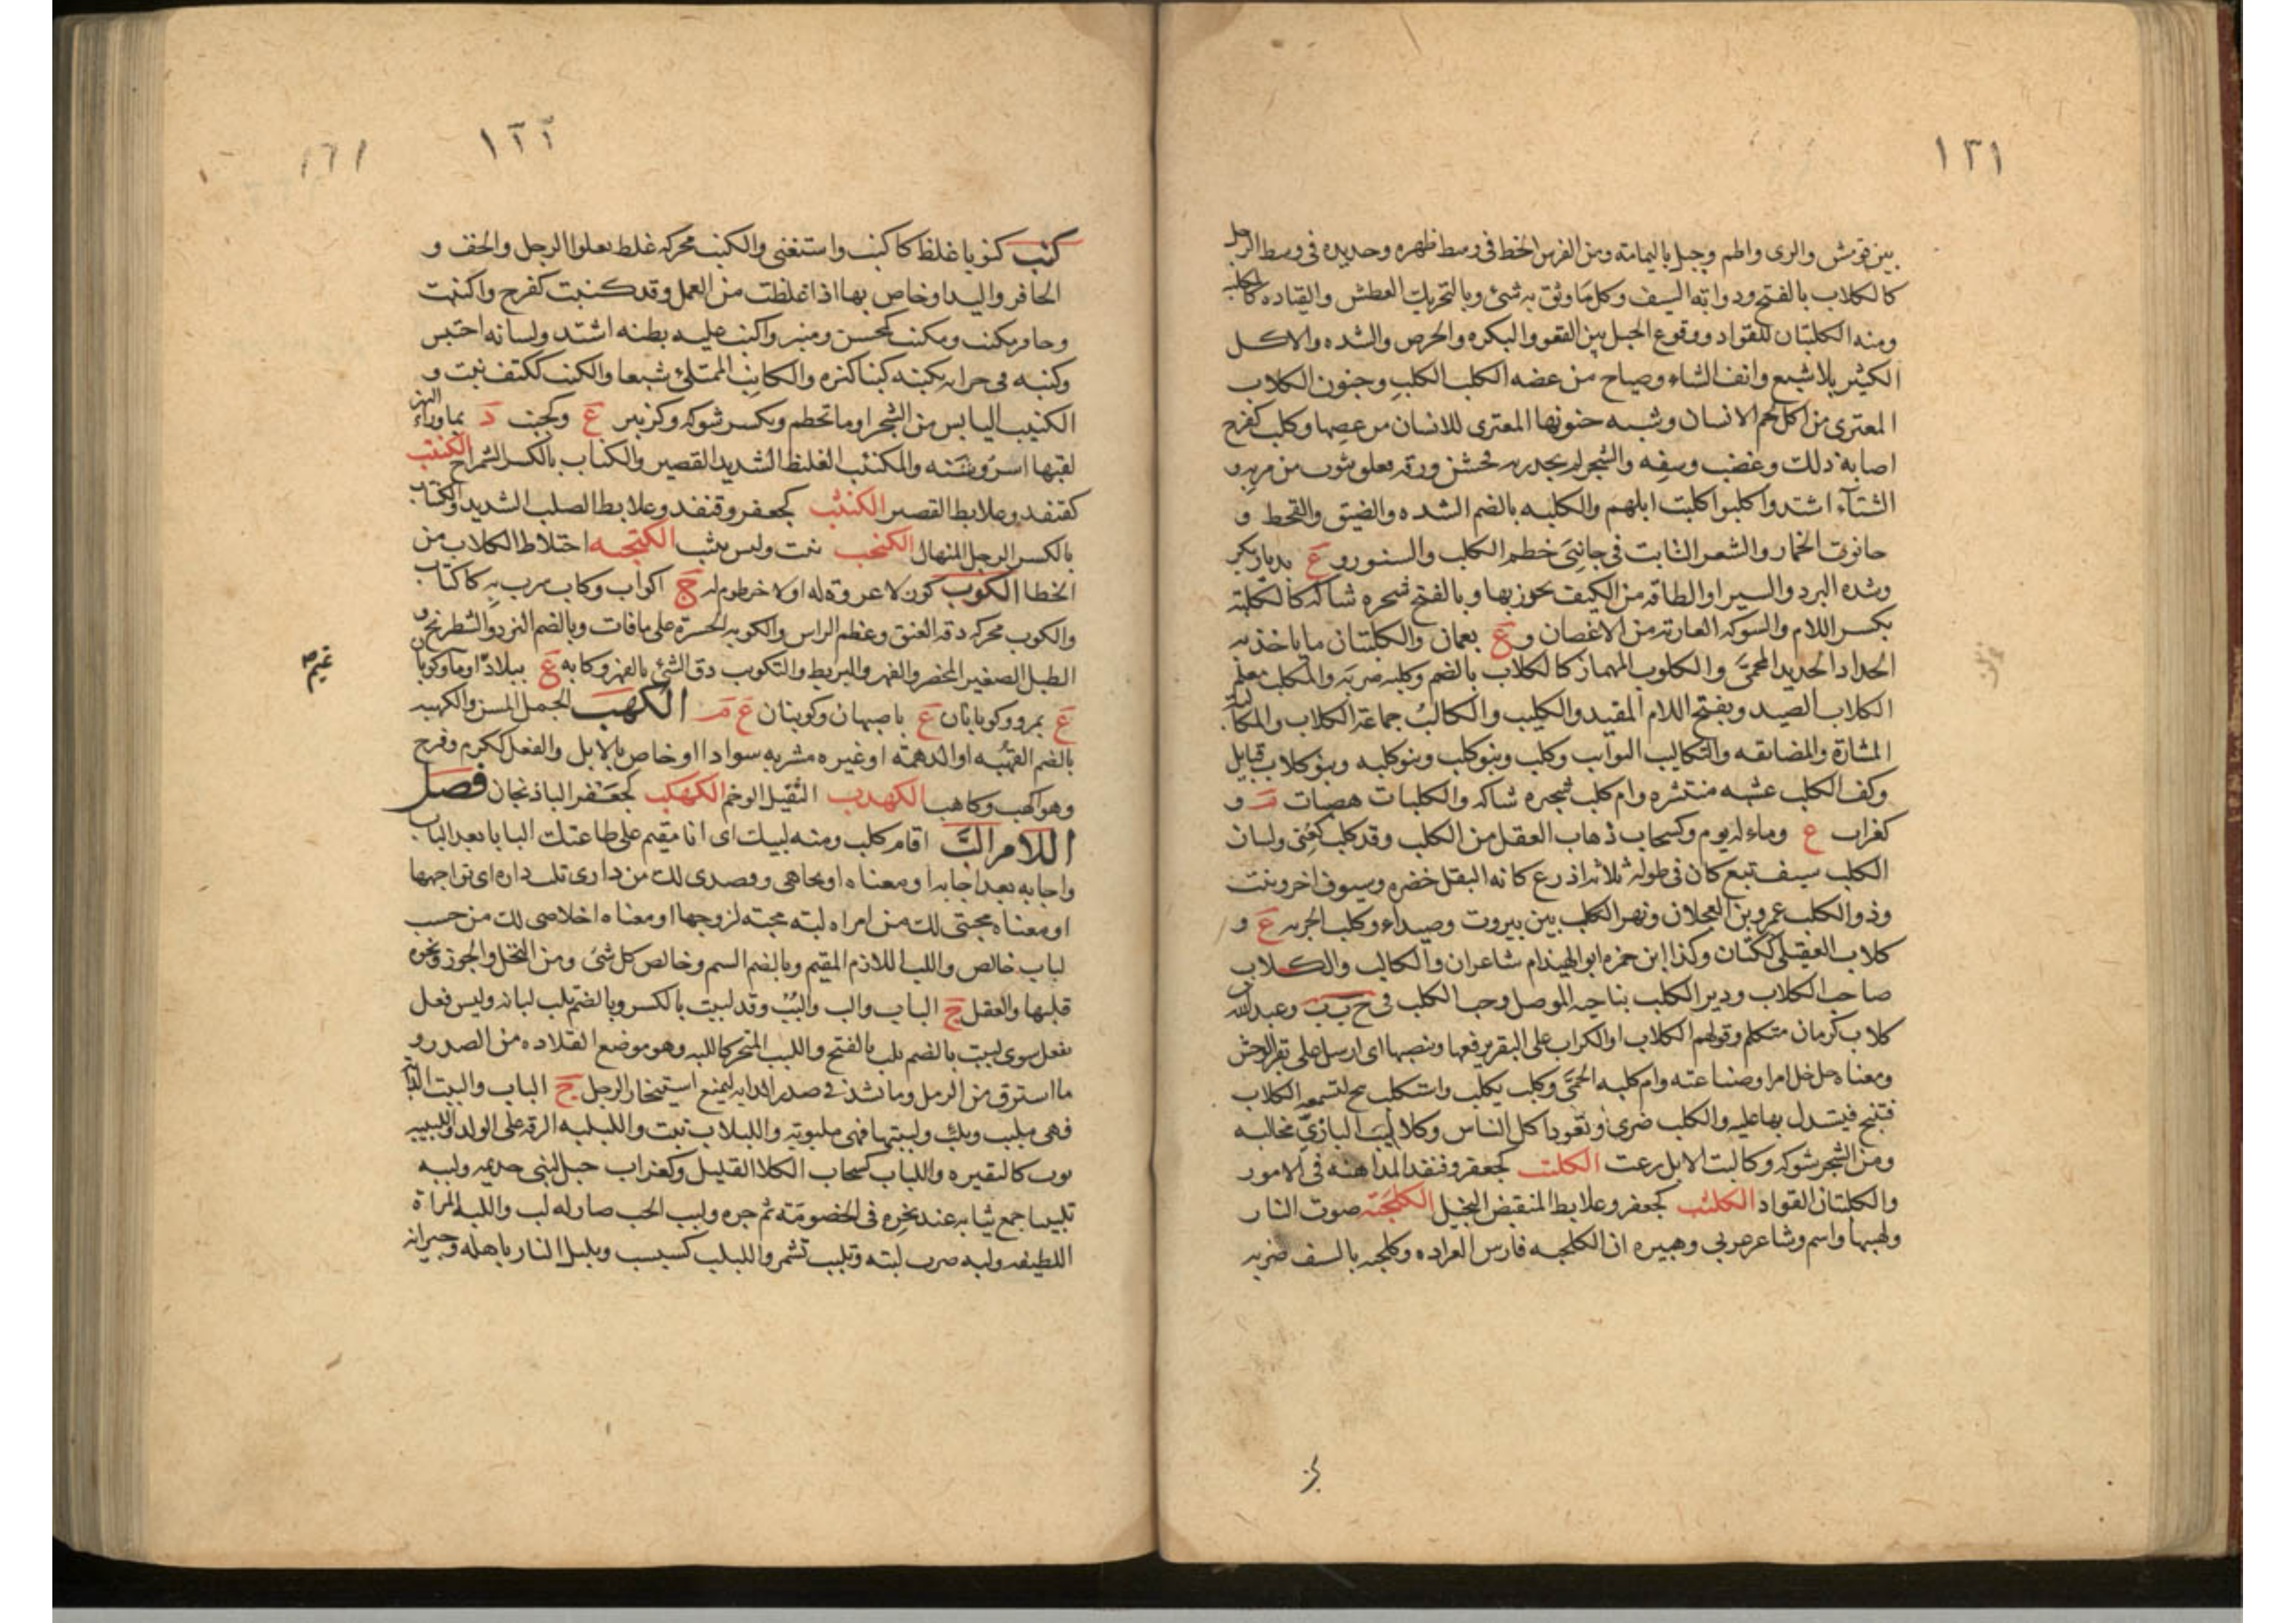 ١٢١
بين قومس والرى واطم وجبل باليمامة ومن الفرس الخط فى وسط ظهره وحديده فى وسط الرحل
كالكلاب بالفتح وذوابة السيف وكل ما وثق به شئ وبالتحريك العطش والقياده كالمكلبه
ومنه الكلتبان للقواد ووقوع الحبل بين القعو والبكره والحرص والشده والاكل
الكثير بلا شبع وانف الشتاء وصياح من عضه الكلب الكلب وجنون الكلاب
المعترى من اكل لحم الانسان وشبه جنونها المعترى للانسان من عضها وكلب كفرح
اصابه ذلك وغضب وسفه والشجر لم يجد ريه فخشن ورقه فعلق ثوب من مر به و
الشتآء اشتد واكلبوا كلبت ابلهم والكلبه بالضم الشده والضيق والقحط و
حانوت الخمار والشعر النابت فى جانبى خطم الكلب والسنور و ع بديار بكر
وشده البرد والسير او الطاقه من الليف يخرز بها وبالفتح شجره شاكه كالكلبة
بكسر اللام والشوكه العارية من الاغصان و ع بعمان والكلبتان ما ياخذ به
الحداد الحديد المحمى والكلوب المهماز كالكلاب بالضم وكلبه ضربه والمكلب معلم
الكلاب الصيد وبفتح اللام المقيد والكليب والكالب جماعة الكلاب والمكالبه
المشارة والمضايقه والتكالب التواثب وكلب وبنو كلب وبنو كلبه وبنو كلاب قبايل
وكف الكلب عشبه منتشره وام كلب شجيره شاكه والكلبات هضبات م و
كغراب ع وماء له يوم وكسحاب ذهاب العقل من الكلب وقد كلب كعنى ولسان
الكلب سيف تبع كان فى طوله ثلاثه اذرع كانه البقل خضره وسيوف اخر ونبت
وذو الكلب عمرو بن العجلان ونهر الكلب بين بيروت وصيداء وكلب الجربه ع و
كلاب العقيلى ككتان وكذا ابن حمزه ابو الهيذام شاعران والكالب والكلاب
صاحب الكلاب ودير الكلب بناحيه الموصل وجب الكلب فى ج ب ب وعبد الله بن
كلاب كرمان متكلم وقولهم الكلاب او الكراب على البقر يرفعها وينصبها اى ارسل على بقر الوحش
ومعناه خل امرا وصناعته وام كلبه الحمى وكلب يكلب واستكلب نبح لتسمعه الكلاب
فتنبح فيستدل بها عليه والكلب ضرى وتعود اكل الناس وكلاليب البازى مخالبه
ومن الشجر شوكه وكالبت الابل رعته الكلتب كجعفر وقنفذ المداهنه فى الامور
والكلتبان القواد الكلثب كجعفر وعلابط المنقبض البخيل الكلحبة صوت النار
ولهيبها واسم وشاعر عربى وهبيره ابن الكلحبه فارس العراده وكلحبه بالسيف ضربه
١٢٢
١٦١
كنب كنوبا غلظ كاكنب واستغنى والكنب محركه غلظ يعلو الرجل والخف و
الحافر واليد او خاص بها اذا غلظت من العمل وقد كنبت كفرح واكنبت
وحافر مكنب ومكنب كمحسن ومنبر واكنب عليه بطنه اشتد ولسانه احتبس
وكنبه فى جرابه يكنبه كنبا كنزه والكانب الممتلئ شبعا والكنب ككتف نبت و
الكنيب اليابس من الشجر او ما تحطم وتكسر شوكه وكزبير ع وكجنب د بما وراء النهر
لقبها اسروشنه والمكنئب الغليظ الشديد القصير والكناب بالكسر الشمراخ الكنتب
كقنفذ وعلابط القصير الكنثب كجعفر وقنفذ وعلابط الصلب الشديد والكنثاب
بالكسر الرجل المنهال الكنحب نبت وليس بثبت الكنخبه اختلاط الكلام من
الخطا الكوب كوز لا عروة له او لا خرطوم له ج اكواب وكاب شرب به كاكتاب
والكوب محركه دقه العنق وعظم الراس والكوبه الحسرة على ما فات وبالضم النرد والشطرنج و
الطبل الصغير المخصر والفهر والبربط والتكويب دق الشئ بالفهر وكابه ع ببلاد او ماء وكوبا
ع بمرو وكوبابان ع باصبهان وكوبنان ع م الكهب الجمل المسن والكهبه
بالضم القهبه او الدهمة او غبره مشربه سوادا او خاص بالابل والفعل ككرم وفرح
وهو اكهب وكاهب الكهدب الثقيل الوخم الكهكب كجعفر الباذنجان فصل
اللام الب اقام كلب ومنه لبيك اى انا مقيم على طاعتك البابا بعد الباب
واجابه بعد اجابه او معناه اتجاهى وقصدى لك من دارى تلب داره اى تواجهها
او معناه محبتى لك من امراه لبه محبه لزوجها او معناه اخلاصى لك من حسب
لباب خالص واللب اللازم المقيم وبالضم السم وخالص كل شئ ومن النخل والجوز ونحوه
قلبها والعقل ج الباب والب والبب وقد لببت بالكسر وبالضم تلب لبابه وليس فعل
يفعل سوى لببت بالضم تلب بالفتح واللبب المنحر كاللبه وهو موضع القلاده من الصدر و
ما استرق من الرمل وما يشد فى صدر الدابه ليمنع استيخار الرحل ج الباب والببت الدابه
فهى ملبب وملب ولببتها فهى ملبوبه واللبلاب نبت واللبلبه الرقه على الولد واللبيبه
ثوب كالبقيره واللباب كسحاب الكلا القليل وكغراب جبل لبنى جذيمه ولببه
تلبيبا جمع ثيابه عند نحره فى الخصومة ثم جره ولبب الحب صار له لب واللبه المراة
اللطيفه ولبه ضرب لبته وتلبب تشمر واللبلب كسبسب وبلبل البار باهله وجيرانه